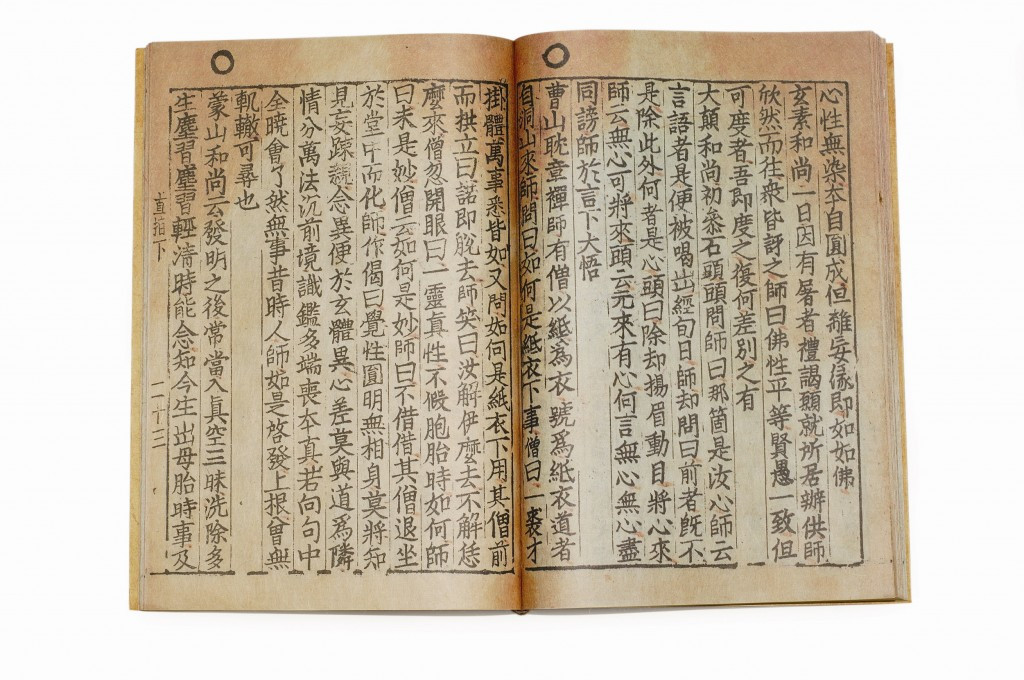 心性無染本自圓成但離妄緣即如如佛
玄素和尚一日因有屠者禮謁願就所居辦供師
欣然而往衆皆訝之師曰佛性平等賢愚一致但
可度者吾即度之復何差別之有
大顚和尚初叅石頭頭問師曰那箇是汝心師云
言語者是便被喝出經旬日師却問曰前者旣不
是除此外何者是心頭曰除却揚眉動目將心來
師云無心可將來頭云元來有心何言無心無心盡
同謗師於言下大悟
曹山耽章禪師有僧以紙爲衣號爲紙衣道者
自洞山來師問曰如何是紙衣下事僧曰一裘才
掛體萬事悉皆如又問如何是紙衣下用其僧前
而拱立曰諾即脫去師笑曰汝解伊麽去不解恁
麽來僧忽開眼曰一靈眞性不假胞胎時如何師
曰未是妙僧云如何是妙師曰不借借其僧退坐
於堂中而化師作偈曰覺性圓明無相身莫將知
見妄踈親念異便於玄體異心差莫與道爲隣
情分萬法沉前境識鑑多端喪本真若向句中
全曉會了然無事昔時人師如是啓發上根曾無
軌轍可尋也
蒙山和尚云發明之後常當入眞空三昧洗除多
生塵習塵習輕淸時能念知今生出母胎時事及
直指下 二十三